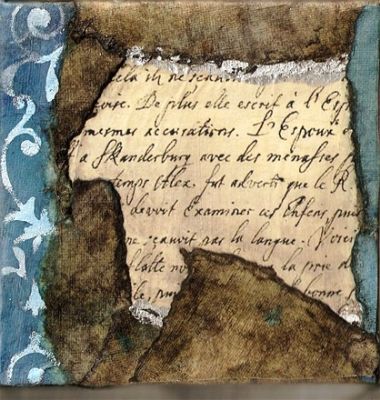 cela il ne scauroit
voire. De plus elle escrit à l'Esp
mesmes accusations. L'Espoux d
à Skanderburg avec des menasses p
temps Alex. fut adverti que le R.
devoit Examiner ces Enfens, puis
ne scauvit pas la langue. (Voici
la prie d
le, bonne